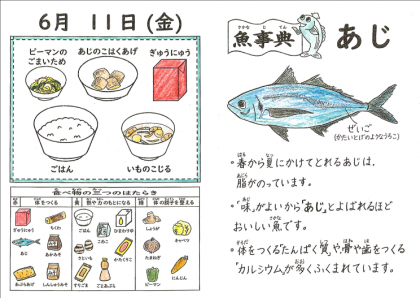 6月 11日(金)
ピーマンの
ごまいため
あじのこはくあげ
ぎゅうにゅう
ごはん
いものこじる
食べ物の三つのはたらき
赤 体をつくる
黄 熱や力のもとになる
緑 体の調子を整える
ぎゅうにゅう
ちくわ
ごはん
ひまわりゆ
しょうが
キャベツ
あじ
あかみそ
こめこ
さといも
かたくりこ
にんじん
あぶらあげ
しんしゅうみそ
すりごま
ごまあぶら
ピーマン
さかな じてん
魚事典
あじ
ぜいご
(かたいとげのようなうろこ)
・春から夏にかけてとれるあじは、
脂がのっています。
・"味"がよいから"あじ"とよばれるほど
おいしい魚です。
・体をつくる「たんぱく質」や、骨や歯をつくる
「カルシウム」が多くふくまれています。